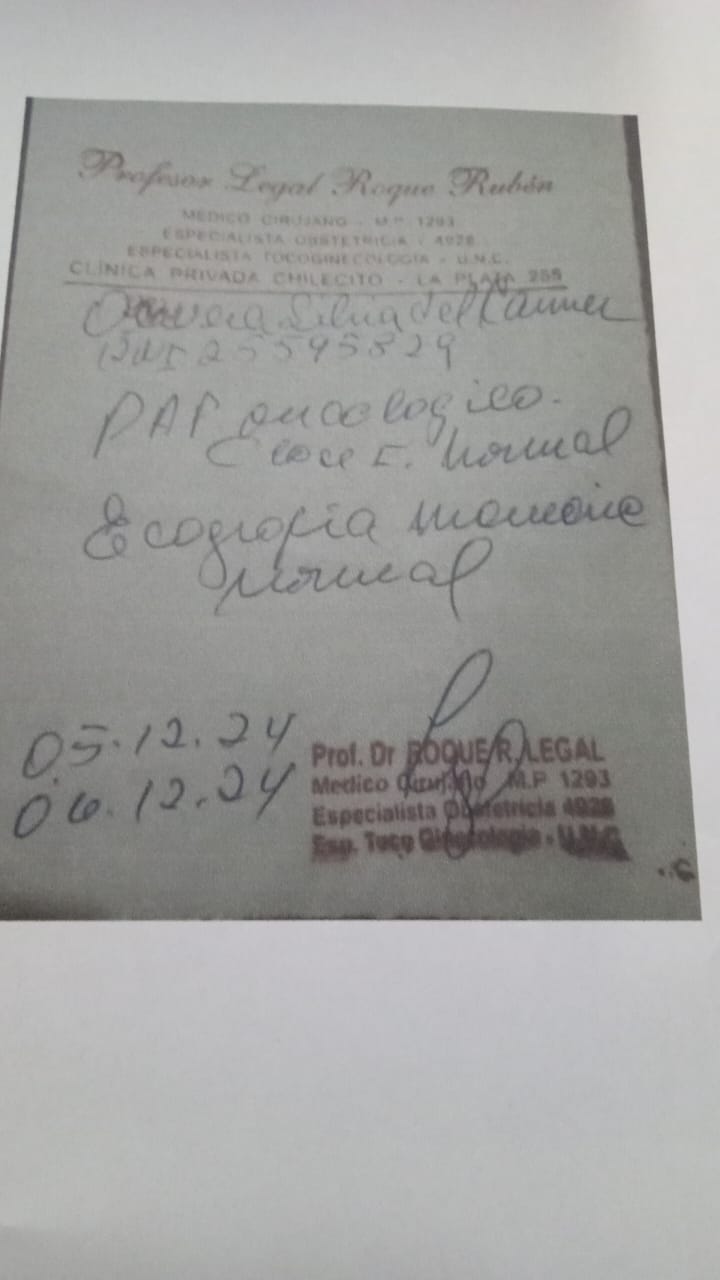 Profesor Legal Roque Rubén
MEDICO CIRUJANO - M.P. 1293
ESPECIALISTA OBSTETRICIA - 4928
ESPECIALISTA TOCOGINECOLOGIA - U.N.C.
CLÍNICA PRIVADA CHILECITO - LA PLATA 255
Silvia del Carmen
DNI 25595829
PAP oncologico.
Clase I. Normal
Ecografia mamaria
normal
05.12.24
06.12.24
Prof. Dr ROQUE R. LEGAL
Medico Cirujano M.P 1293
Especialista Obstetricia 4928
Esp. Toco Ginecologia - U.N.C